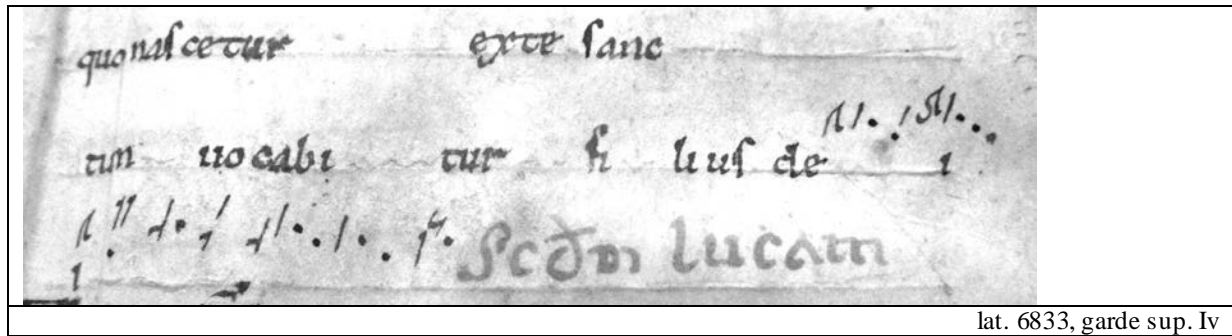 quo nascetur ex te sanc
tum uocabi tur fi lius de i
i Scdm lucam
lat. 6833, garde sup. Iv